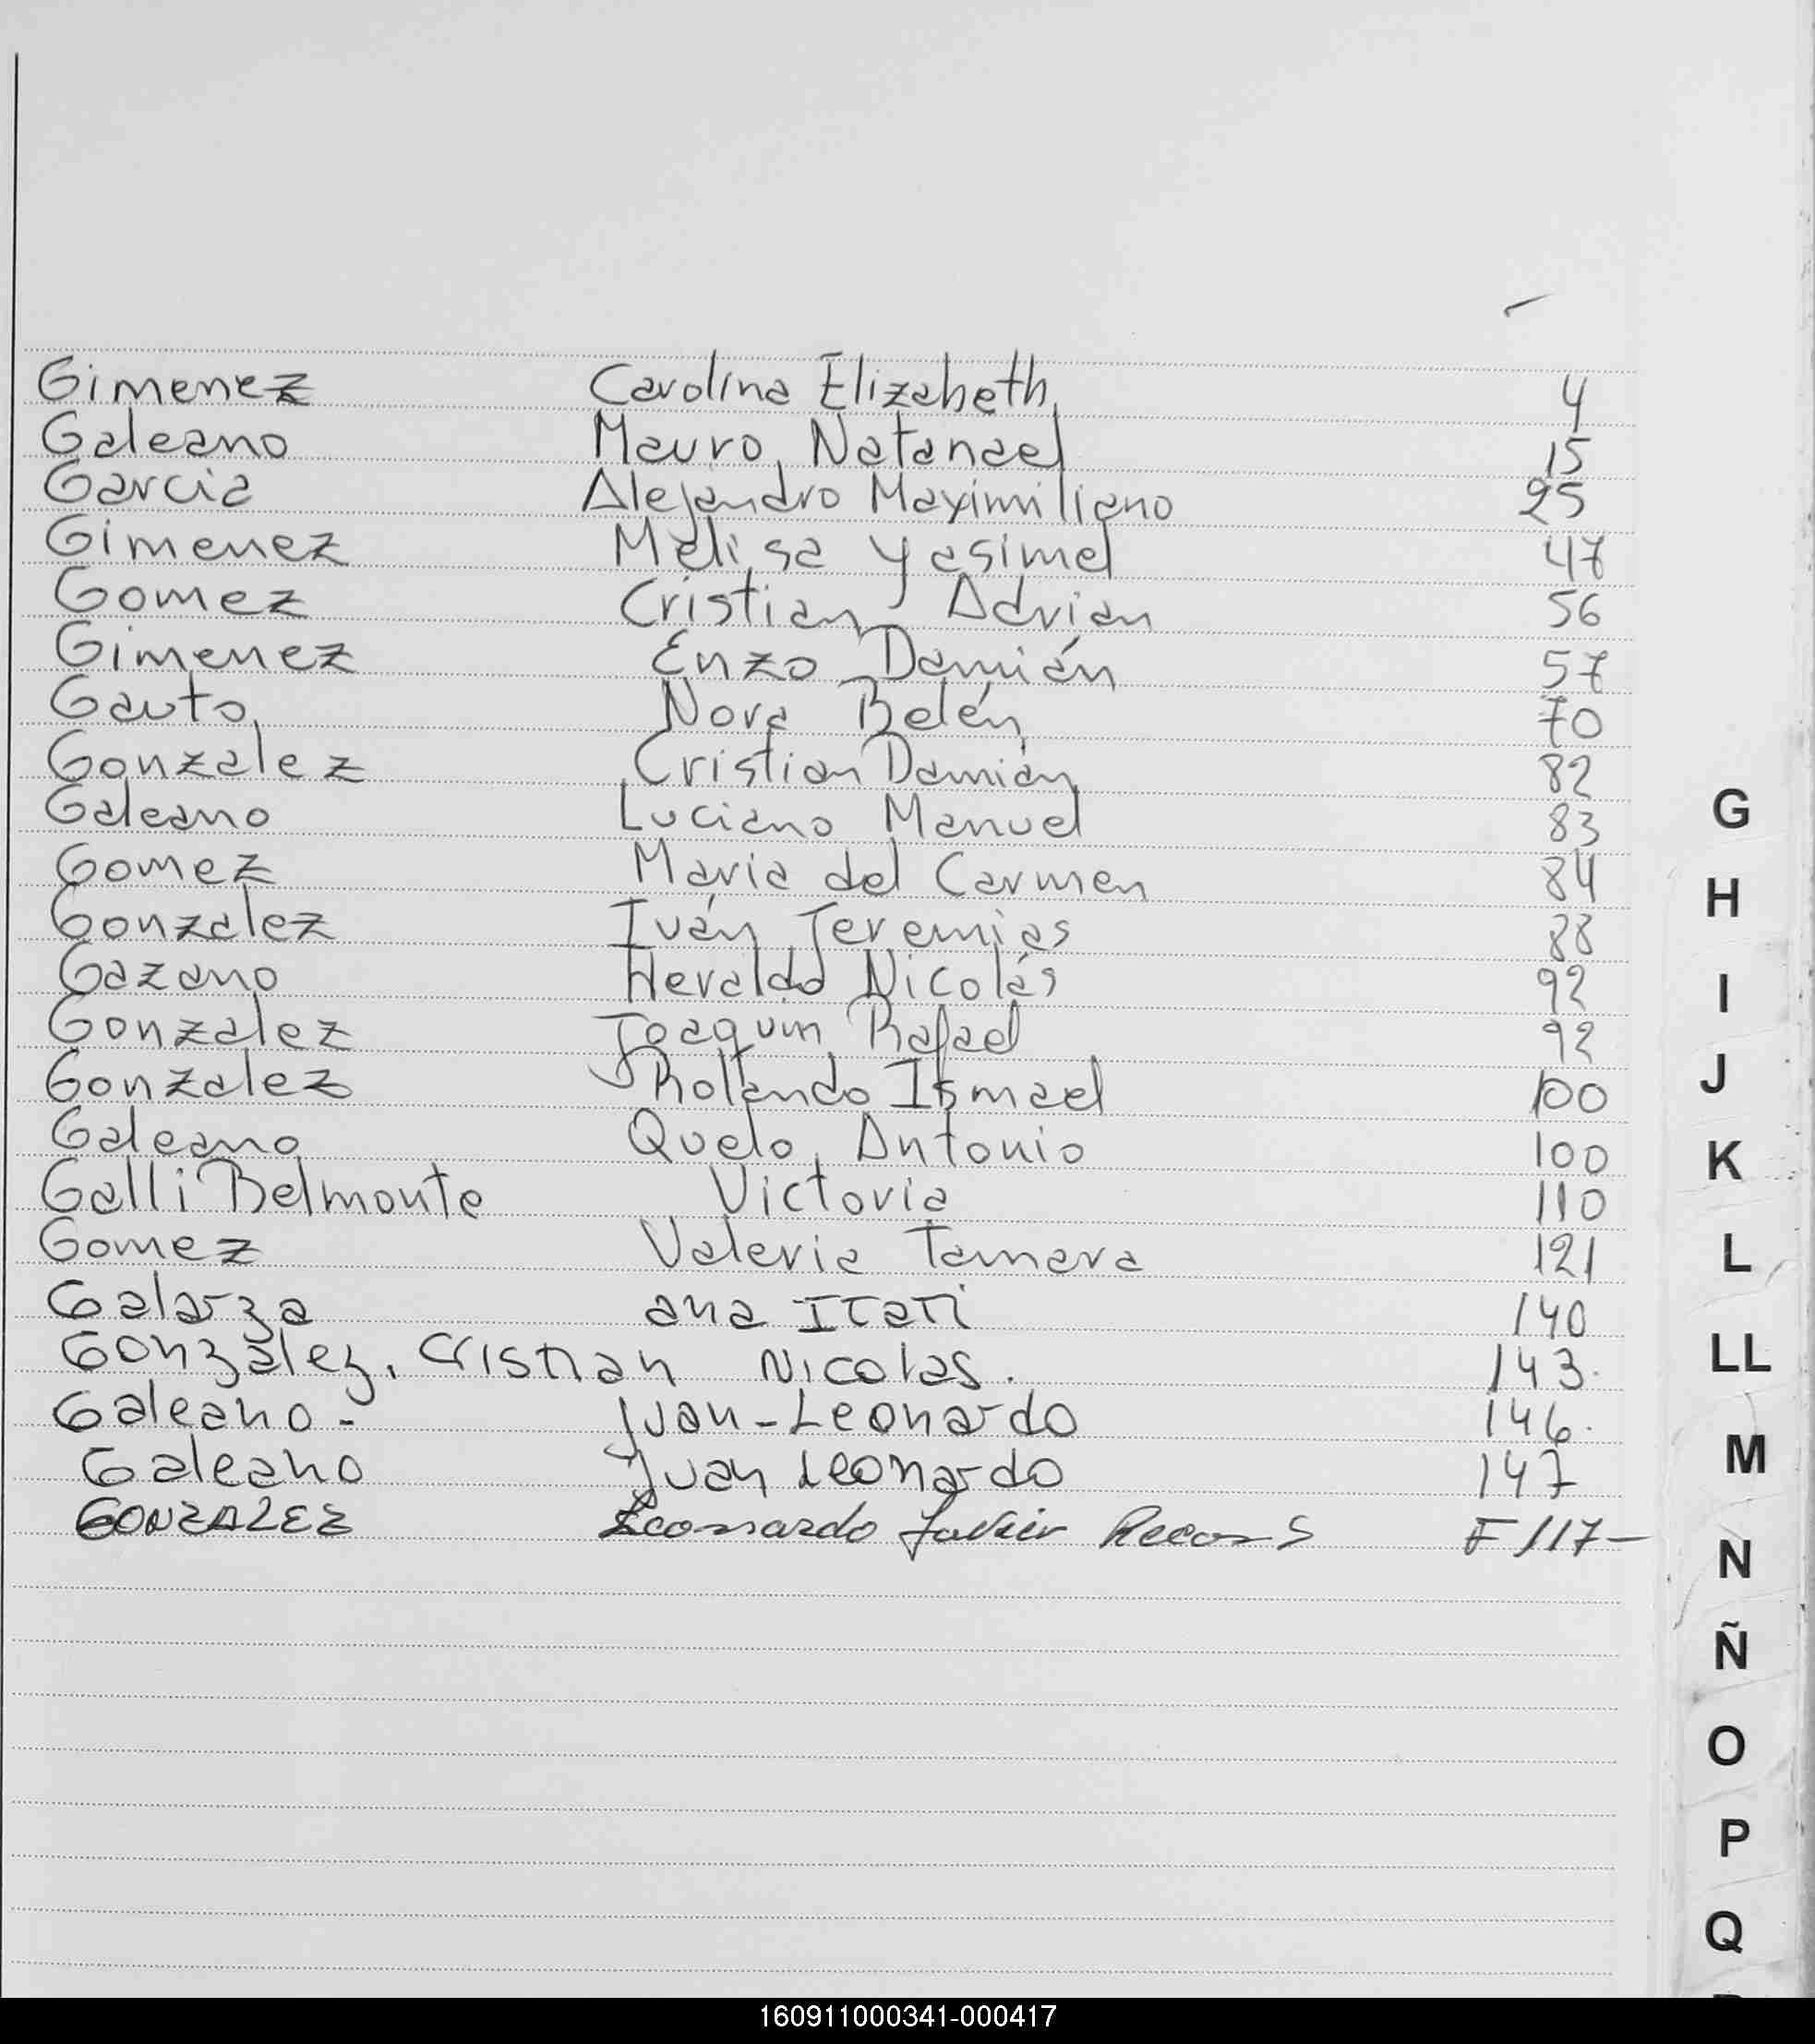 Gimenez Carolina Elizabeth 4
Galeano Mauro Natanael 15
Garcia Alejandro Maximiliano 25
Gimenez Melisa Yasimel 47
Gomez Cristian Adrian 56
Gimenez Enzo Damián 57
Gauto Nora Belén 70
Gonzalez Cristian Damián 82
Galeano Luciano Manuel 83
Gomez Maria del Carmen 84
Gonzalez Iván Jeremias 88
Gazano Heraldo Nicolás 92
Gonzalez Joaquin Rafael 92
Gonzalez Rolando Ismael 100
Galeano Quelo Antonio 100
Galli Belmonte Victoria 110
Gomez Valeria Tamara 121
Galarza ana Itati 140
Gonzalez, Cristian Nicolas. 143.
Galeano - Juan-Leonardo 146.
Galeano Juan Leonardo 147
GONZALEZ Leonardo Javier F 117-
G
H
I
J
K
L
LL
M
N
Ñ
O
P
Q
160911000341-000417